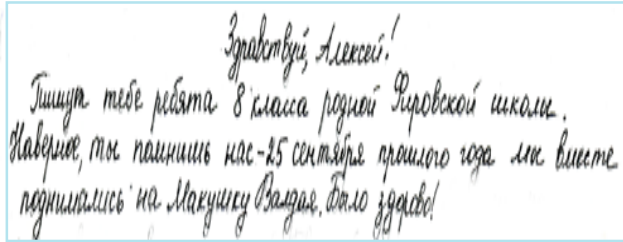 Здравствуй, Алексей!
Пишут тебе ребята 8 класса родной Фировской школы.
Наверное, ты помнишь нас - 25 сентября прошлого года мы вместе
поднимались на Макушку Валдая. Было здорово!